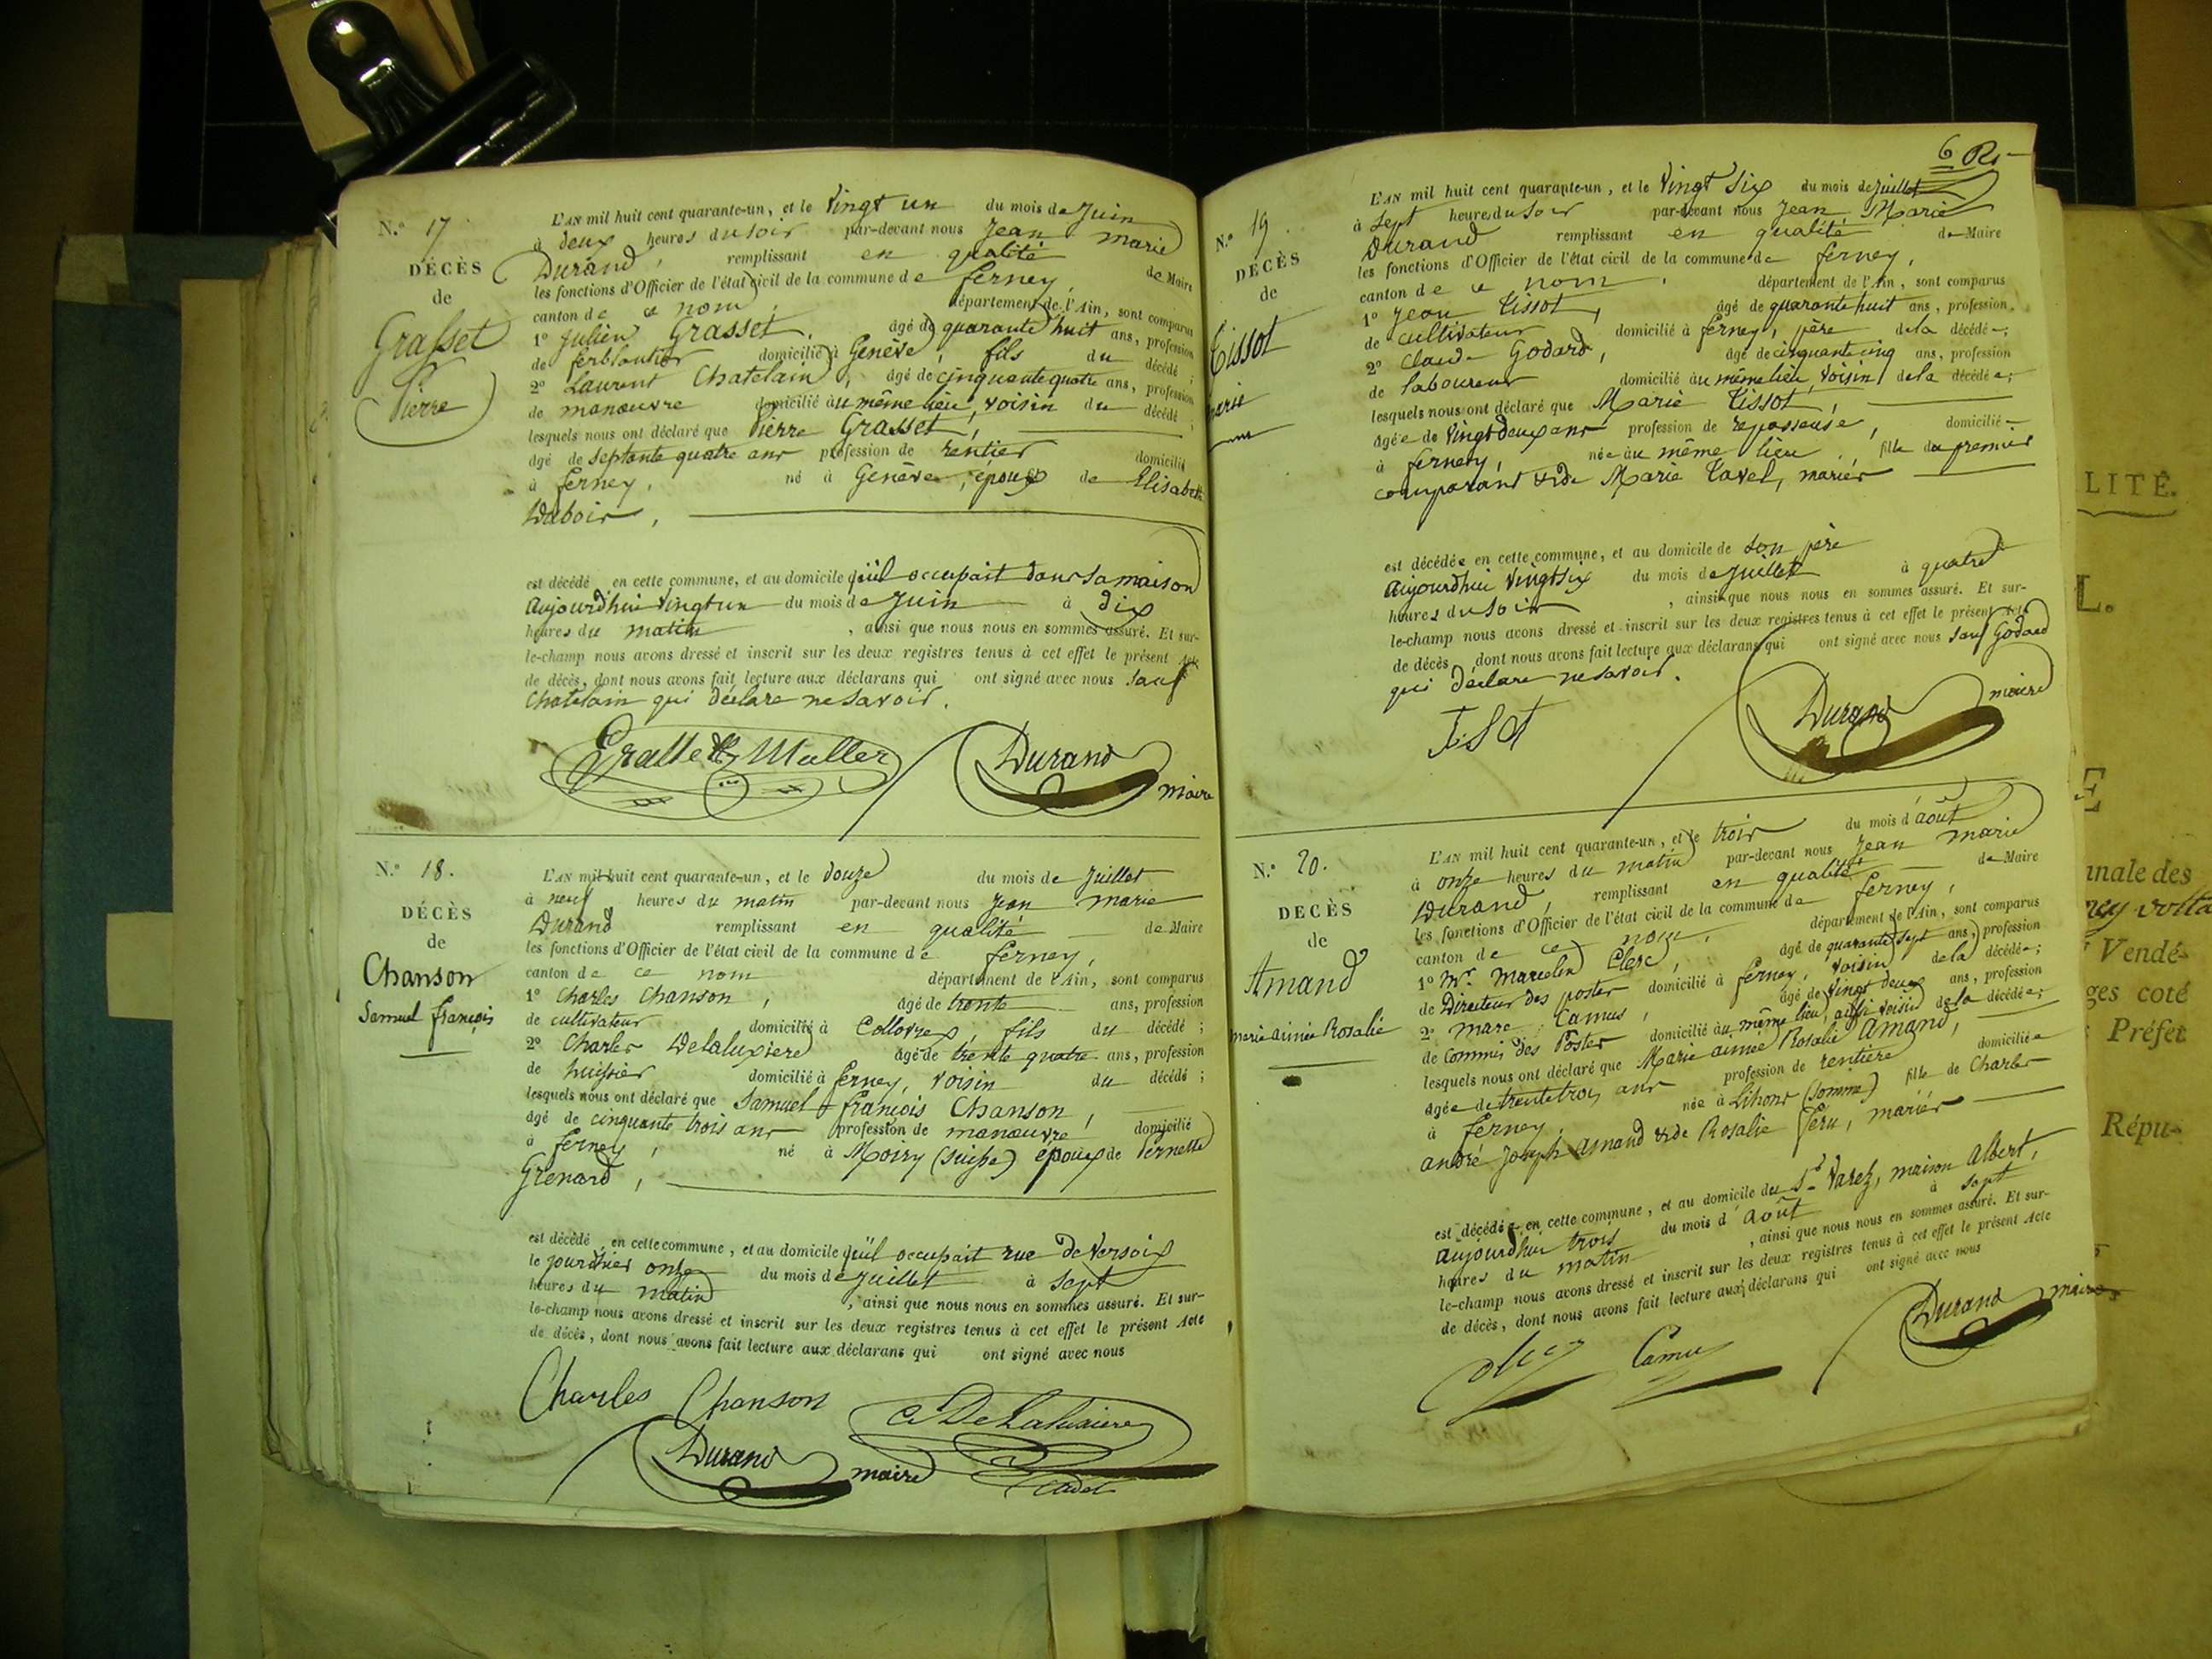 N.° 17
DÉCÈS
de
Grasset
Pierre
L'AN mil huit cent quarante-un, et le Vingt un du mois de Juin
à deux heures du soir par-devant nous Jean Marie
Durand, remplissant en qualité de Maire
les fonctions d'Officier de l'état civil de la commune de ferney,
canton de ce nom, département de l'Ain, sont comparus
1° Julien Grasset, âgé de quarante huit ans, profession
de ferblantier domicilié à Genève, fils du décédé;
2° Laurent Chatelain, âgé de cinquante quatre ans, profession
de manœuvre domicilié au même lieu, voisin du décédé;
lesquels nous ont déclaré que Pierre Grasset,
âgé de septante quatre ans profession de rentier domicilié
à ferney, né à Genève, époux de Elisabeth
Duboir,
est décédé en cette commune, et au domicile qu'il occupait dans sa maison
aujourd'hui vingt un du mois de Juin à dix
heures du matin, ainsi que nous nous en sommes assuré. Et sur-
le-champ nous avons dressé et inscrit sur les deux registres tenus à cet effet le présent Acte
de décès, dont nous avons fait lecture aux déclarans qui ont signé avec nous sauf
Chatelain qui déclare ne savoir.
Grasset Muller Durand maire
N.° 18.
DÉCÈS
de
Chanson
Samuel françois
L'AN mil huit cent quarante-un, et le douze du mois de Juillet
à neuf heures du matin par-devant nous Jean Marie
Durand remplissant en qualité de Maire
les fonctions d'Officier de l'état civil de la commune de ferney,
canton de ce nom département de l'Ain, sont comparus
1° Charles Chanson, âgé de trente ans, profession
de cultivateur domicilié à Collovrex, fils du décédé;
2° Charles Delaluxiere âgé de trente quatre ans, profession
de huissier domicilié à ferney, voisin du décédé;
lesquels nous ont déclaré que Samuel françois Chanson,
âgé de cinquante trois ans profession de manœuvre domicilié
à ferney, né à Moiry (Suisse) époux de Pernette
Grenard,
est décédé en cette commune, et au domicile qu'il occupait rue de Versoix
le jour d'hier onze du mois de Juillet à sept
heures du matin, ainsi que nous nous en sommes assuré. Et sur-
le-champ nous avons dressé et inscrit sur les deux registres tenus à cet effet le présent Acte
de décès, dont nous avons fait lecture aux déclarans qui ont signé avec nous
Charles Chanson C. Delaluxiere
Durand maire cadet
6 Rs
N.° 19.
DÉCÈS
de
Tissot
marie
L'AN mil huit cent quarante-un, et le Vingt Six du mois de Juillet
à sept heures du soir par-devant nous Jean Marie
Durand remplissant en qualité de Maire
les fonctions d'Officier de l'état civil de la commune de ferney,
canton de ce nom, département de l'Ain, sont comparus
1° Jean Tissot, âgé de quarante huit ans, profession
de cultivateur domicilié à ferney, père de la décédée;
2° Claude Godard, âgé de cinquante cinq ans, profession
de laboureur domicilié au même lieu, voisin de la décédée;
lesquels nous ont déclaré que Marie Tissot,
âgée de vingt deux ans profession de repasseuse, domiciliée
à ferney, née au même lieu, fille du premier
comparant & de Marie Tavel, mariés
est décédée en cette commune, et au domicile de son père
aujourd'hui vingt six du mois de Juillet à quatre
heures du soir, ainsi que nous nous en sommes assuré. Et sur-
le-champ nous avons dressé et inscrit sur les deux registres tenus à cet effet le présent Acte
de décès dont nous avons fait lecture aux déclarans qui ont signé avec nous sauf Godard
qui déclare ne savoir.
TiSot Durand maire
N.° 20.
DÉCÈS
de
Amand
marie aimée Rosalie
L'AN mil huit cent quarante-un, et le trois du mois d'août
à onze heures du matin par-devant nous Jean Marie
Durand, remplissant en qualité de Maire
les fonctions d'Officier de l'état civil de la commune de ferney,
canton de ce nom, département de l'Ain, sont comparus
1° Mr. Marcelin Clerc, âgé de quarante sept ans, profession
de Directeur des postes domicilié à ferney, voisin de la décédée;
2° Marc Camus, âgé de vingt deux ans, profession
de Commis des Postes domicilié au même lieu, aussi voisin de la décédée;
lesquels nous ont déclaré que Marie aimée Rosalie Amand,
âgée de trente trois ans profession de rentière domiciliée
à ferney, née à Lihons (Somme) fille de Charles
andré Joseph amand & de Rosalie feru, mariés
est décédée en cette commune, et au domicile du Sr. Varez, maison Albert,
aujourd'hui trois du mois d'août à sept
heures du matin, ainsi que nous nous en sommes assuré. Et sur-
le-champ nous avons dressé et inscrit sur les deux registres tenus à cet effet le présent Acte
de décès, dont nous avons fait lecture aux déclarans qui ont signé avec nous
Clerc Camus Durand maire
LITÉ.
L.
E
nnale des
ney volta
Vendé-
ges coté
Préfet
Répu-